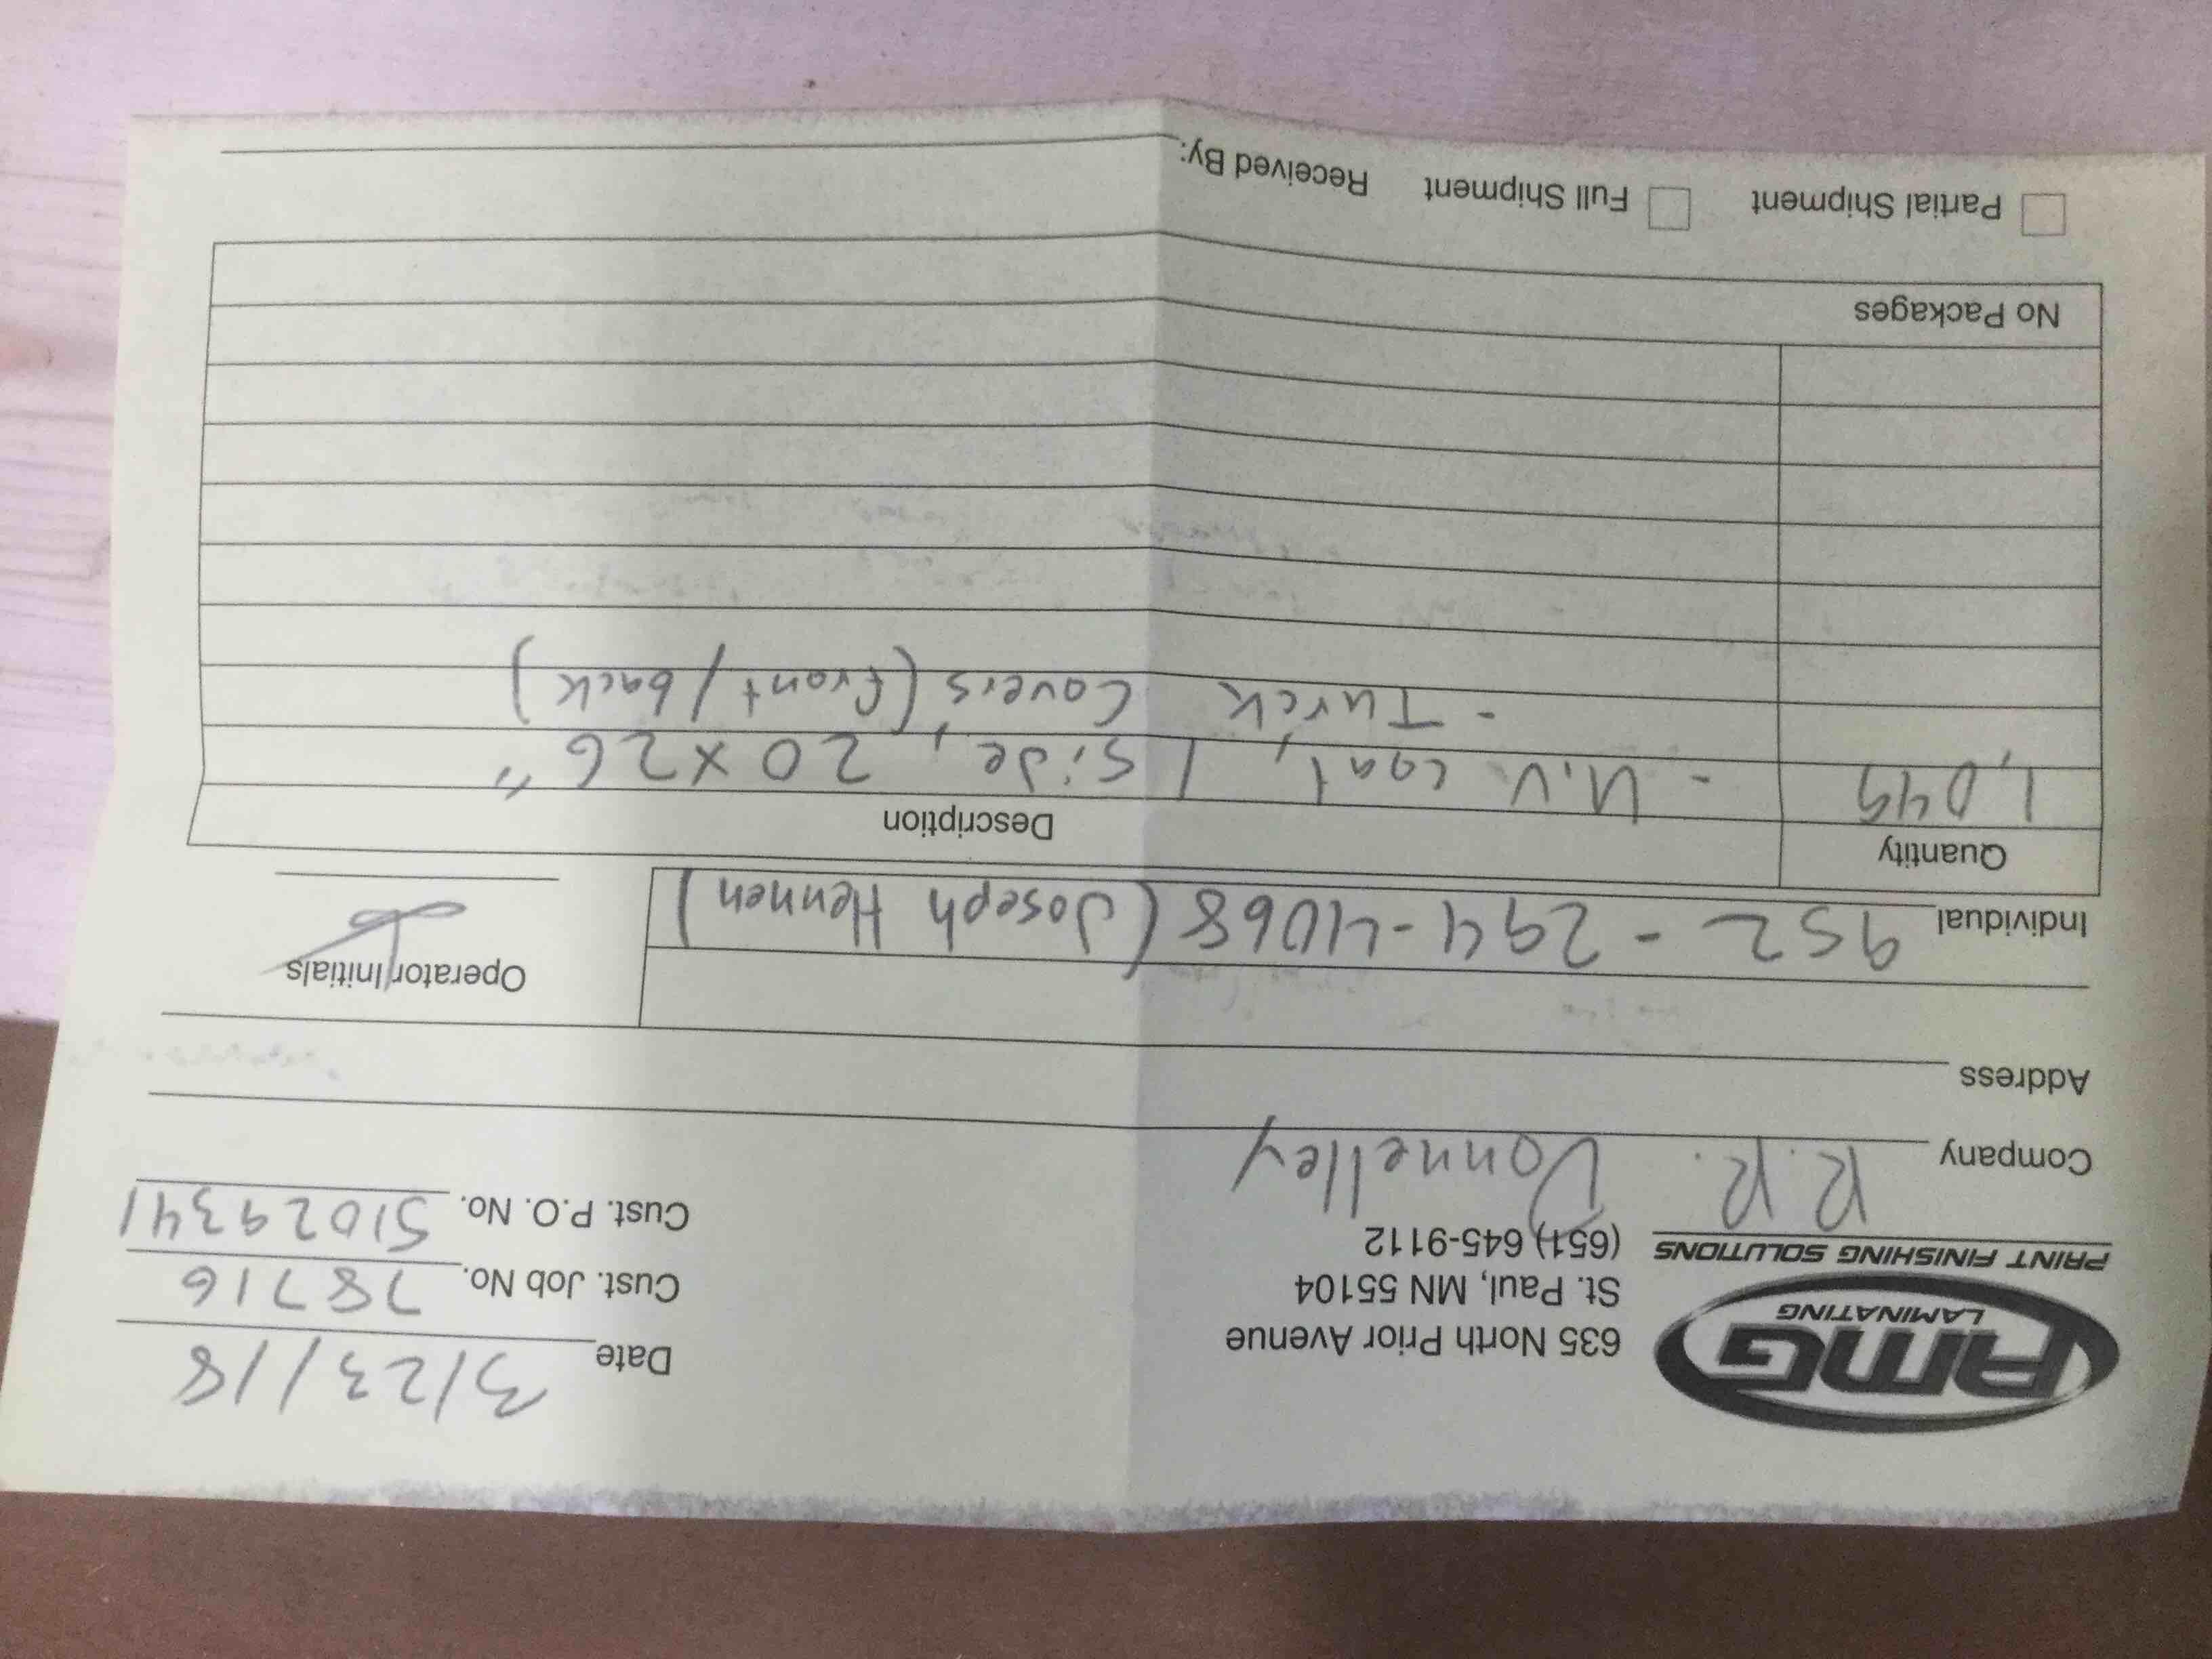 AMG
LAMINATING
PRINT FINISHING SOLUTIONS
635 North Prior Avenue
St. Paul, MN 55104
(651) 645-9112
Date 3/23/18
Cust. Job No. 78716
Cust. P.O. No. 51029341
Company R.R. Donnelley
Address
Individual 952-294-4068 (Joseph Hennen)
Operator Initials
Quantity Description
1,049 - U.V. coat, 1 side, 20x26"
- Turck Covers (front/back)
No Packages
Partial Shipment Full Shipment Received By: